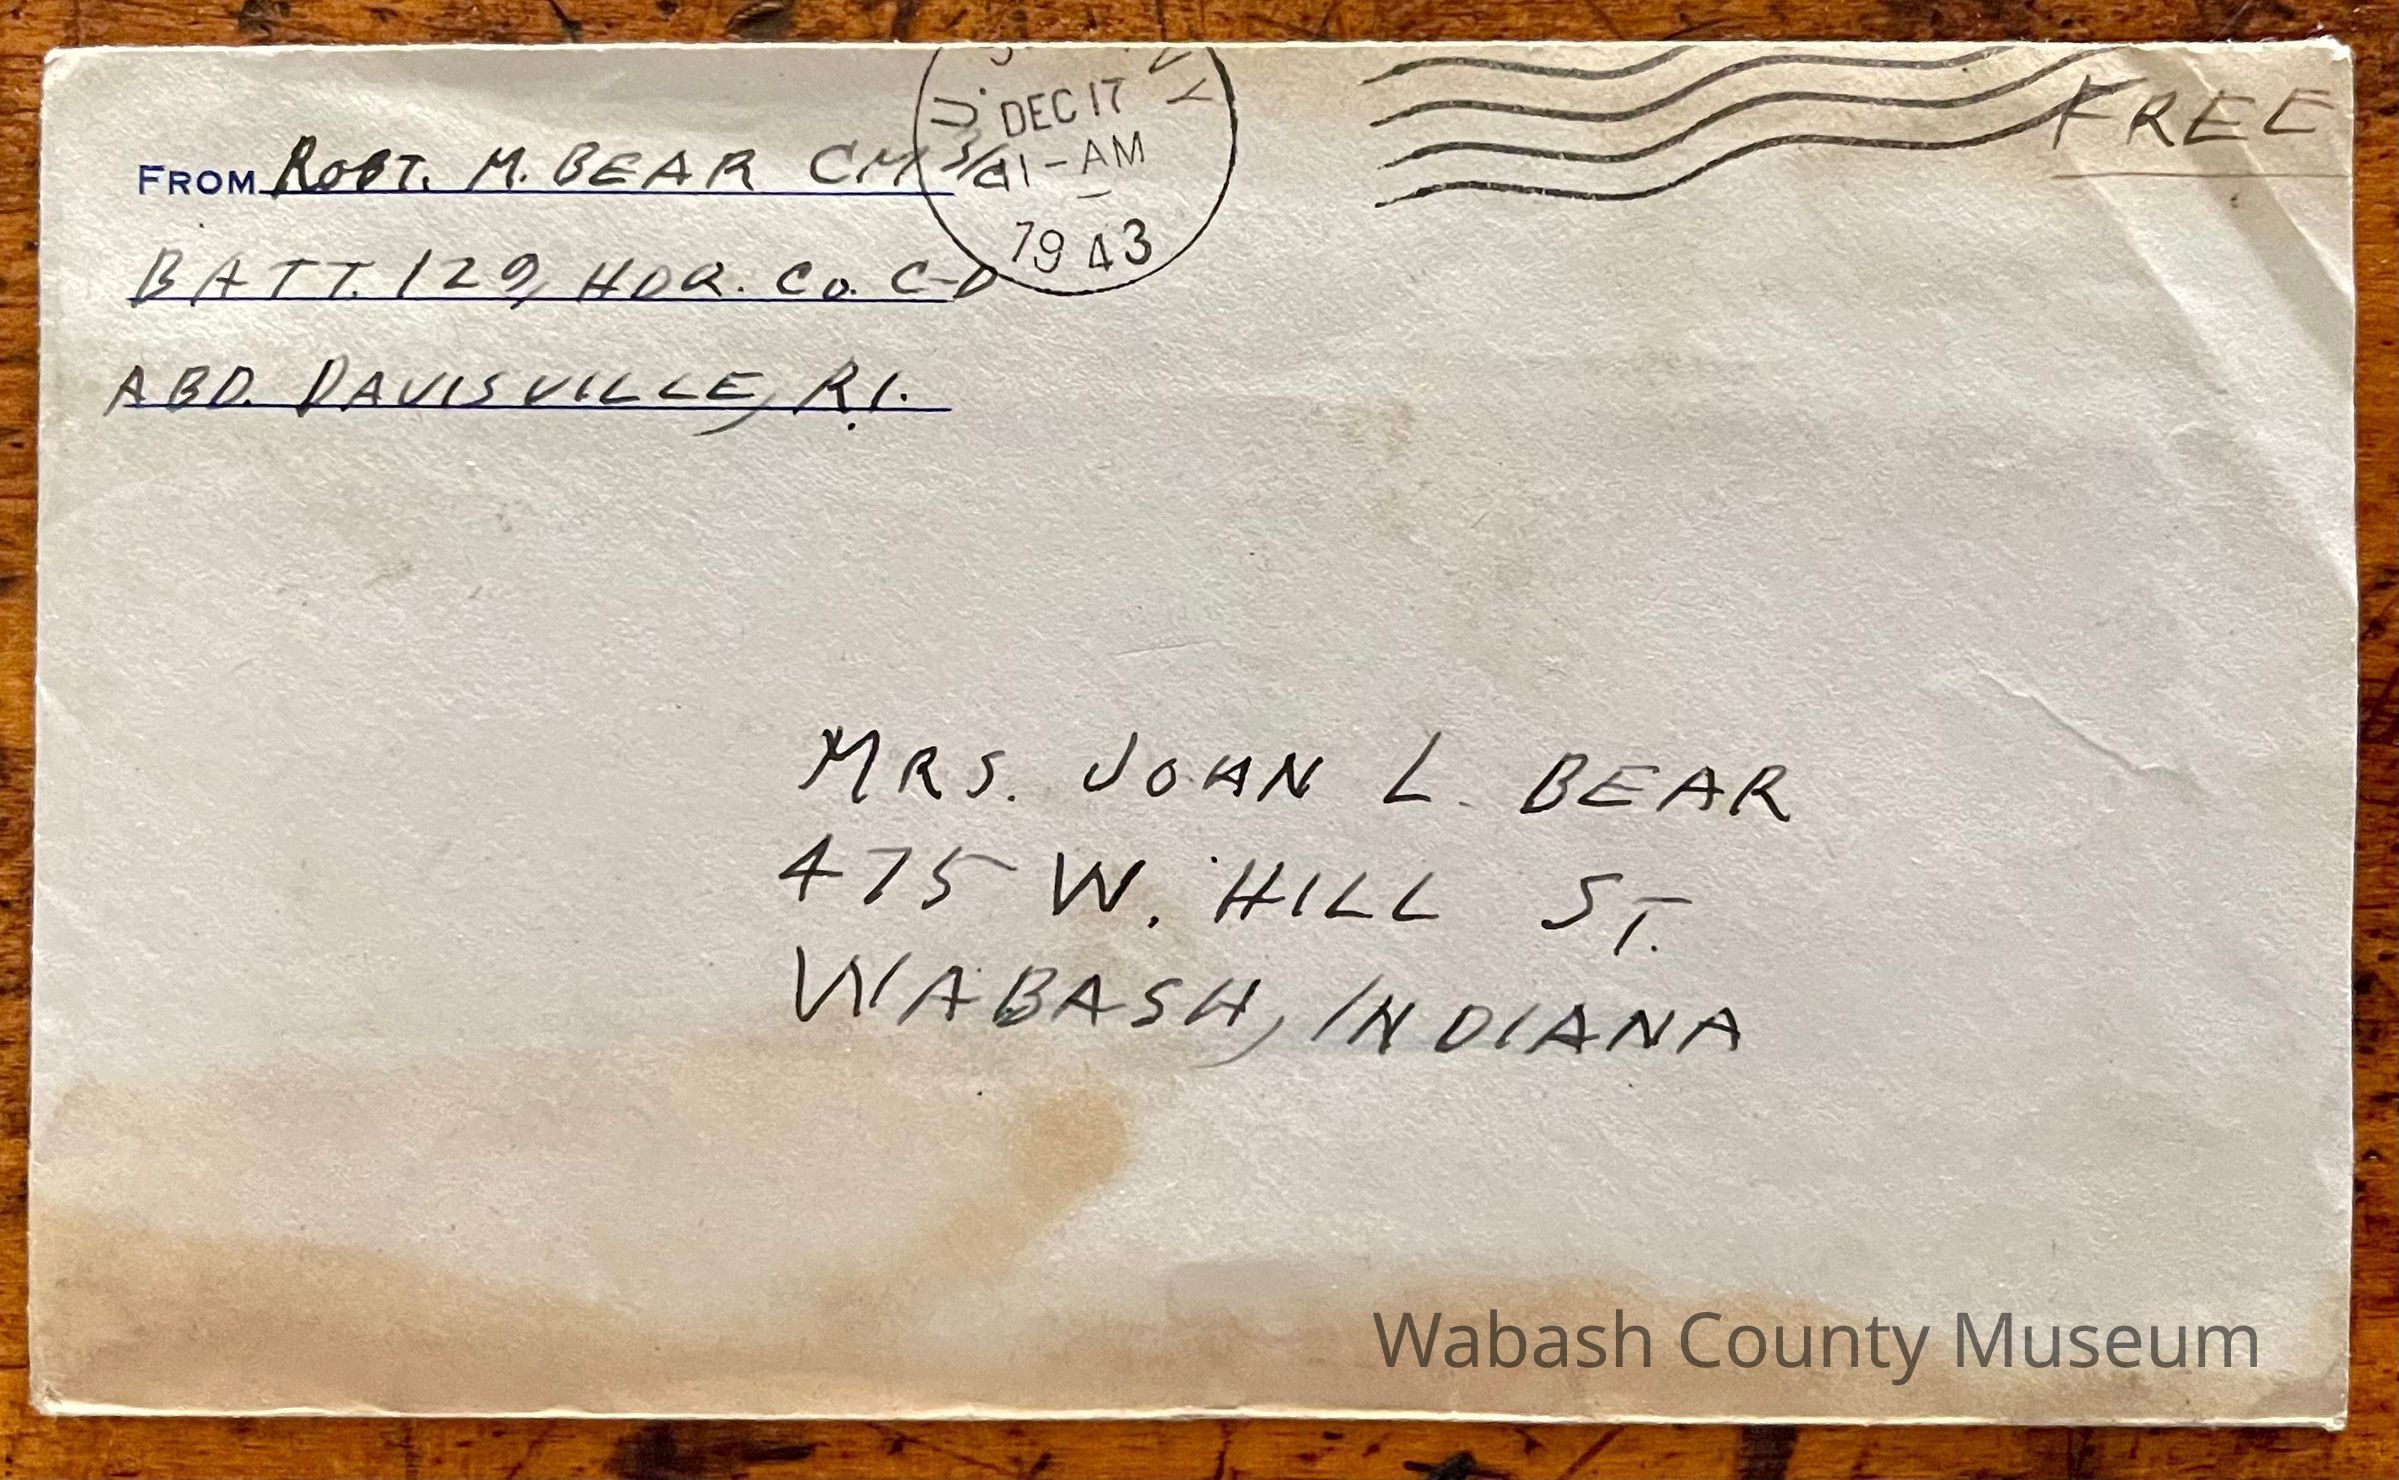 FROM ROBT. M. BEAR CM 3/c
BATT. 129, HDQ. Co. C-D
ABD. DAVISVILLE, R.I.
U.S. NAVY
DEC 17
11-AM
1943
FREE
MRS. JOHN L. BEAR
475 W. HILL ST.
WABASH, INDIANA
Wabash County Museum